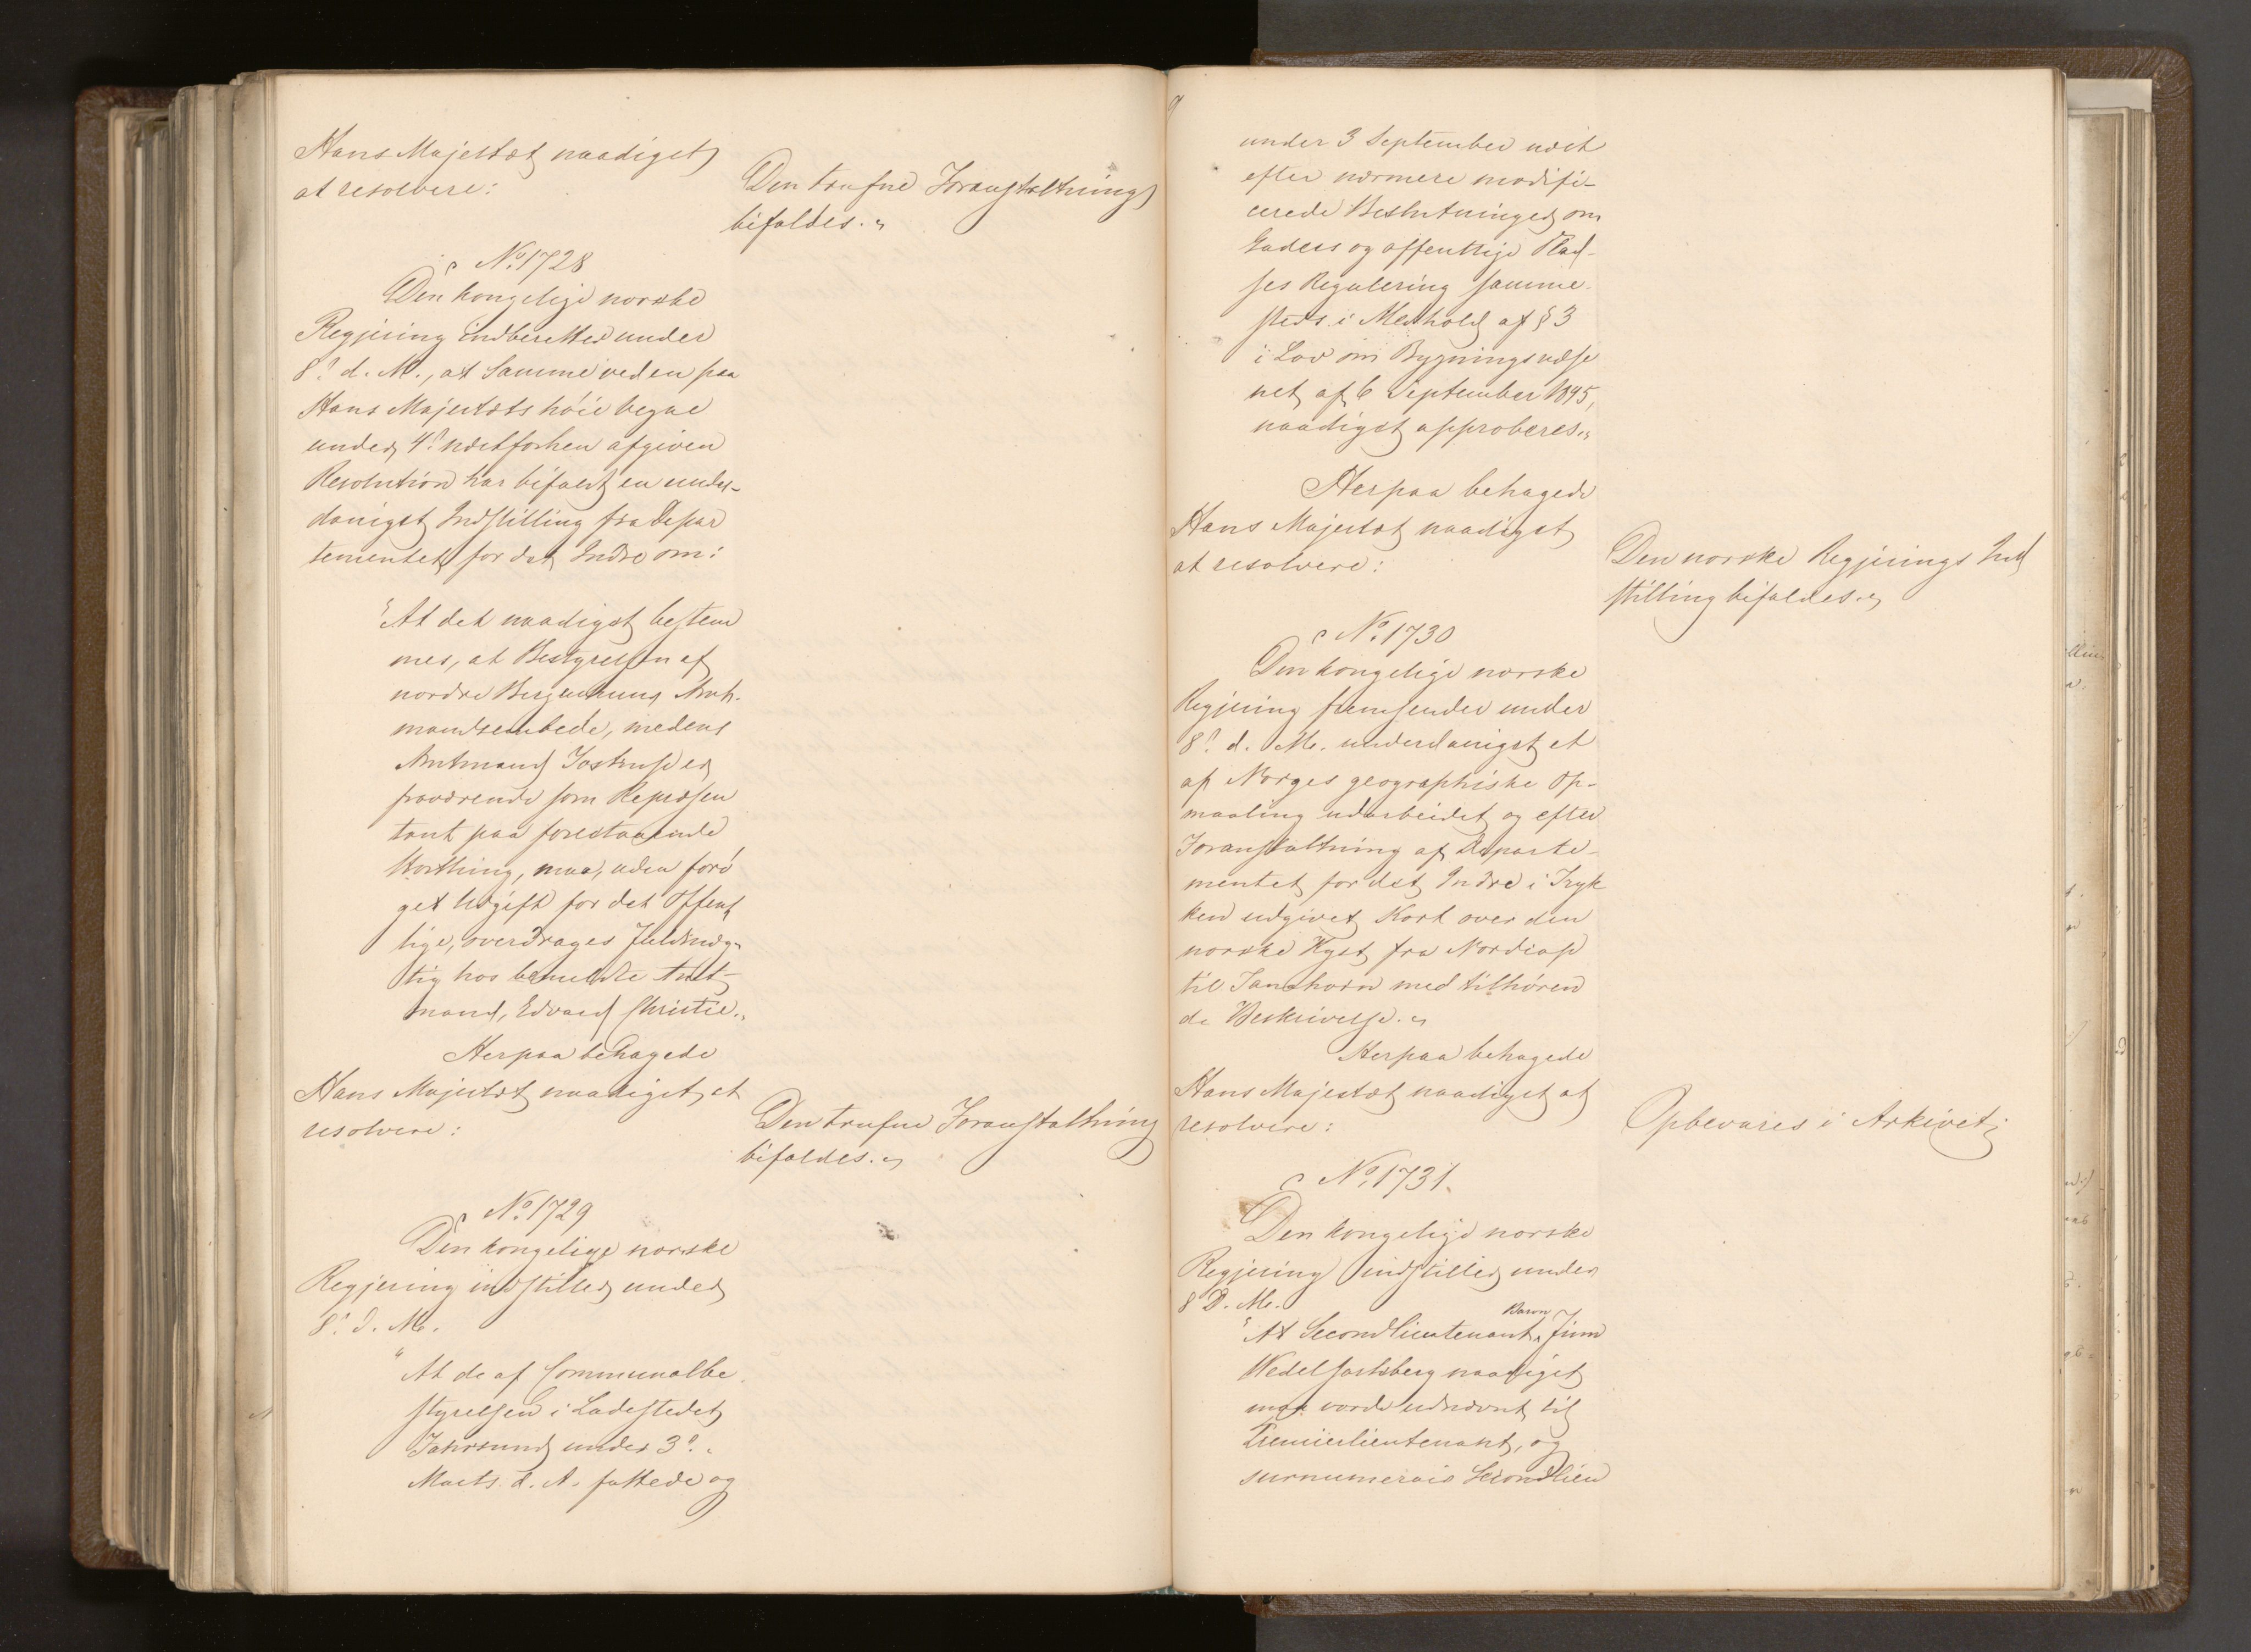 Hans Majestæt naadigst
at resolvere:
Den trufne Foranstaltning
bifaldes.
No. 1728
Den kongelige norske
Regjering indberetter under
8de d. M., at Samme ved en paa
Hans Majestæts höie vegne
under 4de næstforhen afgiven
Resolution har bifaldt en under-
danigst Indstilling fra Depar
tementet for det Indre om:
"At det naadigst bestem
mes, at Bestyrelsen af
nordre Bergenhuus Amt-
mandsembede, medens
Amtmand er
fraværende som Repræsen
tant paa forestaaende
Storthing, maa, uden forö
get Udgift for det Offent
lige, overdrages Fuldmæg-
tig hos bemeldte Amt-
mand, Edvard Christie."
Herpaa behagede
Hans Majestæt naadigst at
resolvere:
Den trufne Foranstaltning
bifaldes.
No. 1729
Den kongelige norske
Regjering indstiller under
8de d. M.
"At de af Communalbe
styrelsen i Ladestedet
under 3de
Marts d. A. fattede og
under 3 September næst
efter nærmere modifi-
cerede Beslutninger om
Gaders og offentlige Plad-
ses Regulering samme-
steds i Medhold af § 3
i Lov om Bygningsvæse
net af 6 September 1845,
naadigst approberes."
Herpaa behagede
Hans Majestæt naadigst
at resolvere:
Den norske Regjerings Ind
stilling bifaldes.
No. 1730
Den kongelige norske
Regjering fremsender under
8de d. M. underdanigst et
af Norges geographiske Op-
maaling udarbeidet og efter
Foranstaltning af Departe-
mentet for det Indre i Tryk
ken udgivet Kort over den
norske Kyst fra Nordcap
til Tanahorn med tilhören
de Beskrivelse.
Herpaa behagede
Hans Majestæt naadigst at
resolvere:
Opbevares i Arkivet;
No. 1731.
Den kongelige norske
Regjering indstiller under
8 D. M.
Baron
"At Secondlieutenant Finn
Wedel Jarlsberg naadigst
maa vorde udnævnt til
Premierlieutenant, og
surnumerair Secondlieu